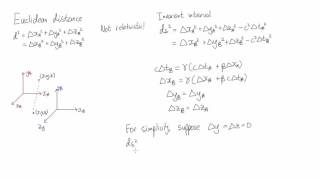 Euclidean distance
d² = Δx_A² + Δy_A² + Δz_A²
= Δx_B² + Δy_B² + Δz_B²
Not relativistic!
Invariant interval
ds² = Δx_A² + Δy_A² + Δz_A² - c²Δt_A²
= Δx_B² + Δy_B² + Δz_B² - c²Δt_B²
cΔt_B = γ(cΔt_A + βΔx_A)
Δx_B = γ(Δx_A + βcΔt_A)
Δy_B = Δy_A
Δz_B = Δz_A
For simplicity, suppose Δy = Δz = 0
ds²